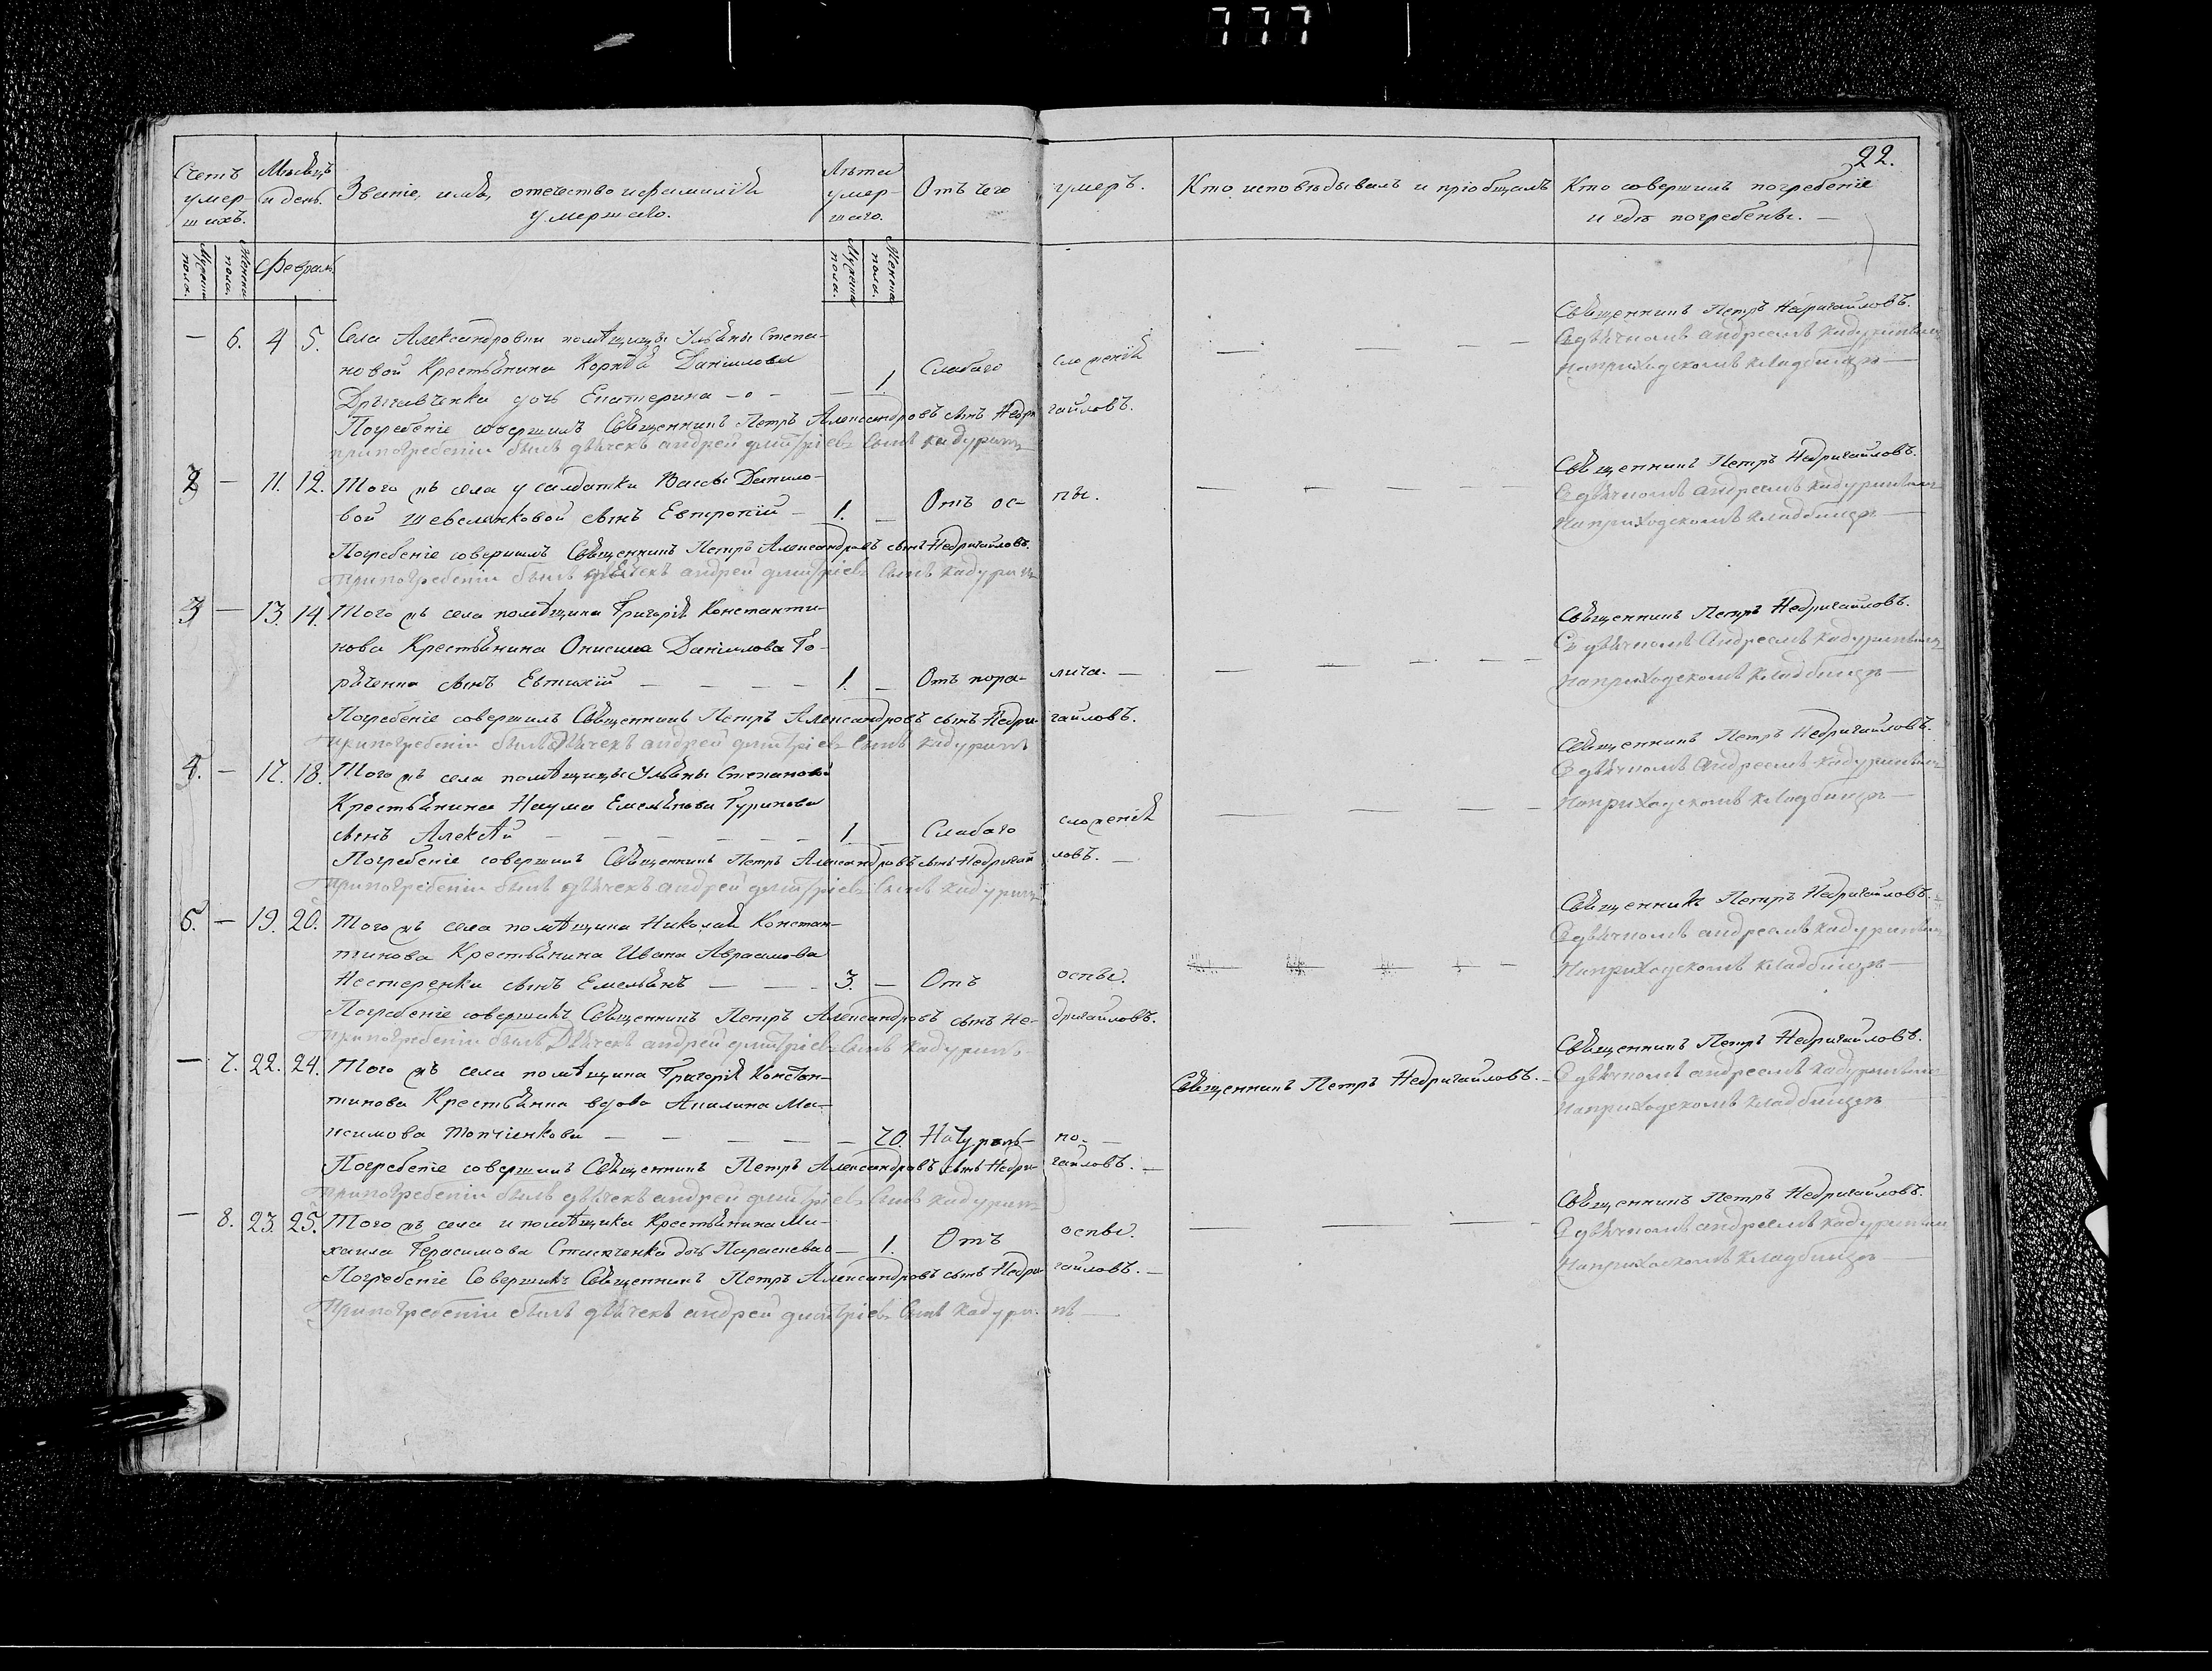 777
22.
Счетъ умершихъ.
Мѣсяцъ и день.
Званіе, имя, отечество и фамилія умершаго.
Лѣта умершаго.
Отъ чего умеръ.
Кто исповѣдывалъ и пріобщалъ
Кто совершилъ погребеніе и гдѣ погребены. —
Мужеска пола.
Женска пола.
Февраль
Мужеска пола.
Женска пола.
— 6. 4 5. Села Александровки помѣщицы Ульяны Степа-
новой Крестьянина Корнѣя Даніилова Слабаго сложенія — — —
дочь Екатерина — — 1.
Священникъ Петръ Недригайловъ.
Съ дьячкомъ андреемъ кадуринымъ
на приходскомъ кладбищѣ —
Погребеніе совершилъ Священникъ Петръ Александровъ сынъ Недригайловъ.
при погребеніи былъ дьячекъ андрей дмитріевъ сынъ кадуринъ
2 — 11. 12. Того жъ села у салдатки Вассы Данило-
вой Шевелянковой сынъ Евтропій — 1. — Отъ оспы. — — — —
Священникъ Петръ Недригайловъ.
Съ дьячкомъ андреемъ кадуринымъ
На приходскомъ кладбищѣ —
Погребеніе совершилъ Священникъ Петръ Александровъ сынъ Недригайловъ.
При погребеніи былъ дьячекъ андрей дмитріевъ сынъ кадуринъ
3 — 13. 14. Того жъ села помѣщика Григорія Константи-
нова Крестьянина Онисима Даніилова Го-
рѣченка сынъ Евтихій — — — — 1. — Отъ паралича. — — — — —
Священникъ Петръ Недригайловъ.
Съ дьячкомъ Андреемъ кадуринымъ
на приходскомъ кладбищѣ —
Погребеніе совершилъ Священникъ Петръ Александровъ сынъ Недригайловъ.
При погребеніи былъ Дьячекъ андрей дмитріевъ сынъ кадуринъ
4. — 17. 18. Того жъ села помѣщицы Ульяны Степановой
Крестьянина Наума Емельянова Гуринова
сынъ Алексѣй — — — — — 1. — Слабаго сложенія — — —
Священникъ Петръ Недригайловъ.
Съ дьячкомъ Андреемъ кадуринымъ
На приходскомъ кладбищѣ —
Погребеніе совершилъ Священникъ Петръ Александровъ сынъ Недригайловъ. —
При погребеніи былъ дьячекъ андрей дмитріевъ сынъ кадуринъ
5. — 19. 20. Того жъ села помѣщика Николая Констан-
тинова Крестьянина Ивана Авраамова
Нестеренка сынъ Емельянъ — — — 3. — Отъ оспы. — — — —
Священникъ Петръ Недригайловъ.
Съ дьячкомъ андреемъ кадуринымъ
На приходскомъ кладбищѣ —
Погребеніе совершилъ Священникъ Петръ Александровъ сынъ Недригайловъ.
При погребеніи былъ Дьячекъ андрей дмитріевъ сынъ кадуринъ
— 7. 22. 24. Того жъ села помѣщика Григорія Констан-
тинова Крестьянка вдова Акилина Ма-
ксимова Топчіенкова — — — — — 70. Натурально. —
Священникъ Петръ Недригайловъ. —
Священникъ Петръ Недригайловъ.
Съ дьячкомъ андреемъ кадуринымъ
на приходскомъ кладбищѣ
Погребеніе совершилъ Священникъ Петръ Александровъ сынъ Недригайловъ. —
При погребеніи былъ дьячекъ андрей дмитріевъ сынъ кадуринъ
— 8. 23. 25. Того жъ села и помѣщика Крестьянина Ми-
хаила Герасимова дочь Параскева — 1. Отъ оспы. — — —
Священникъ Петръ Недригайловъ.
Съ дьячкомъ андреемъ кадуринымъ
На приходскомъ кладбищѣ —
Погребеніе Совершилъ Священникъ Петръ Александровъ сынъ Недригайловъ. —
При погребеніи былъ дьячекъ андрей дмитріевъ сынъ кадуринъ —